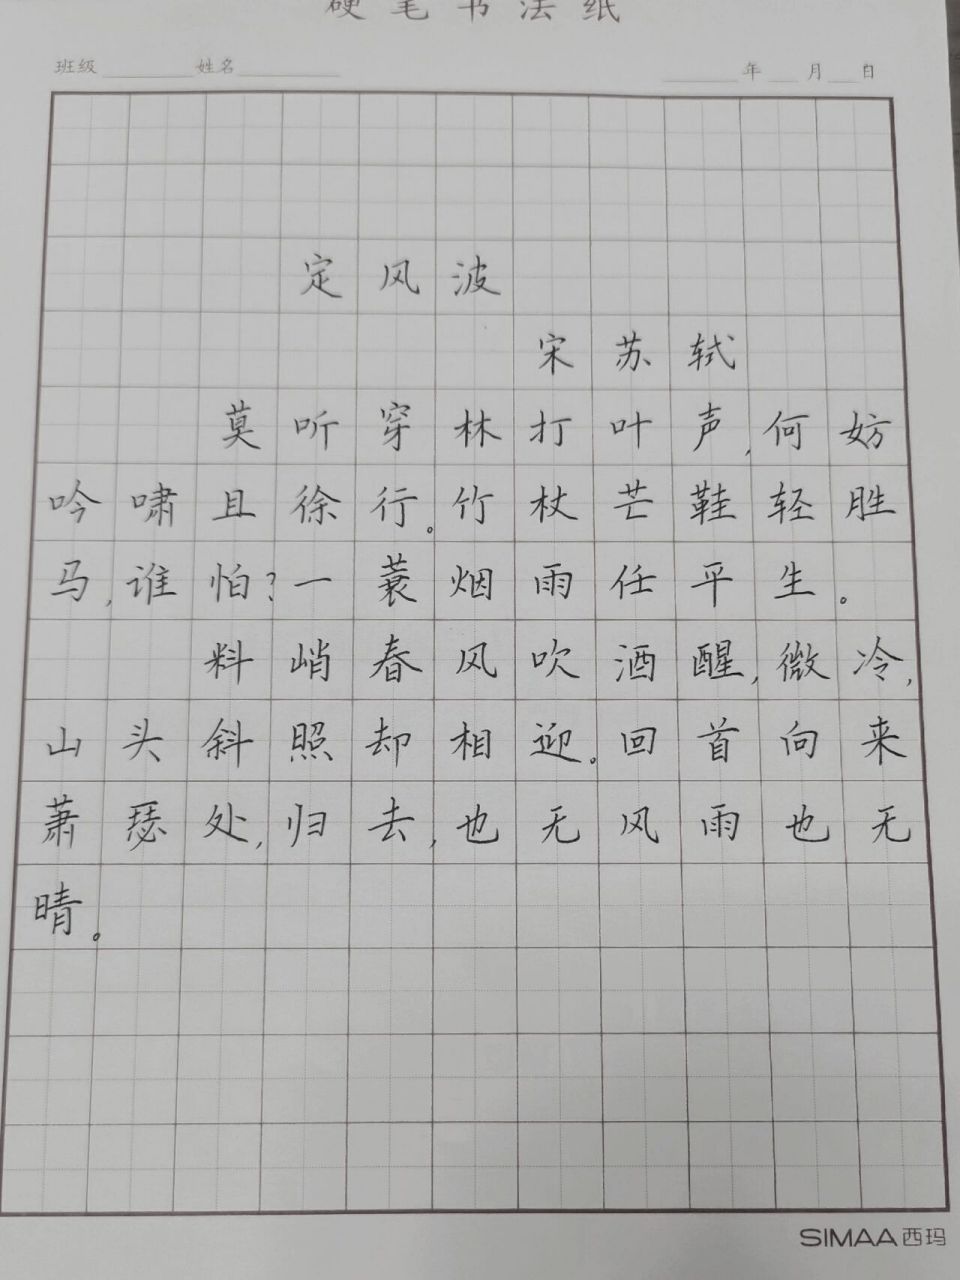 硬笔书法纸
班级 姓名 年 月 日
定风波
宋苏轼
莫听穿林打叶声,何妨
吟啸且徐行。竹杖芒鞋轻胜
马,谁怕?一蓑烟雨任平生。
料峭春风吹酒醒,微冷,
山头斜照却相迎。回首向来
萧瑟处,归去,也无风雨也无
晴。
SIMAA西玛